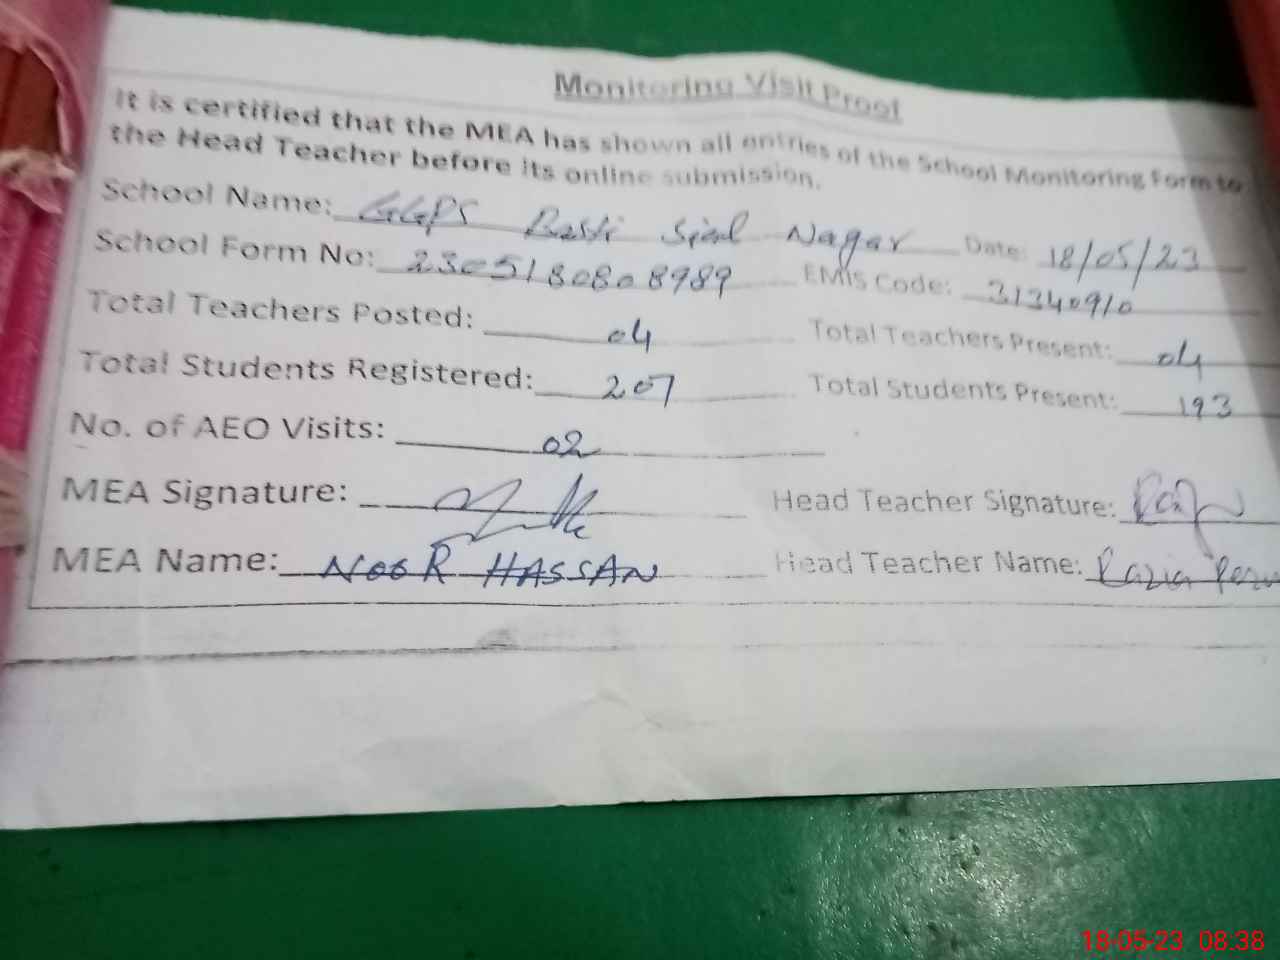 Monitoring Visit Proof
It is certified that the MEA has shown all entries of the School Monitoring Form to
the Head Teacher before its online submission.
School Name: GGPS Basti Sial Nagar Date: 18/05/23
School Form No: 2305180808989 EMIS Code: 31340910
Total Teachers Posted: 04 Total Teachers Present: 04
Total Students Registered: 207 Total Students Present: 193
No. of AEO Visits: 02
MEA Signature: Head Teacher Signature:
MEA Name: NOOR HASSAN Head Teacher Name: Razia
18-05-23 08.38